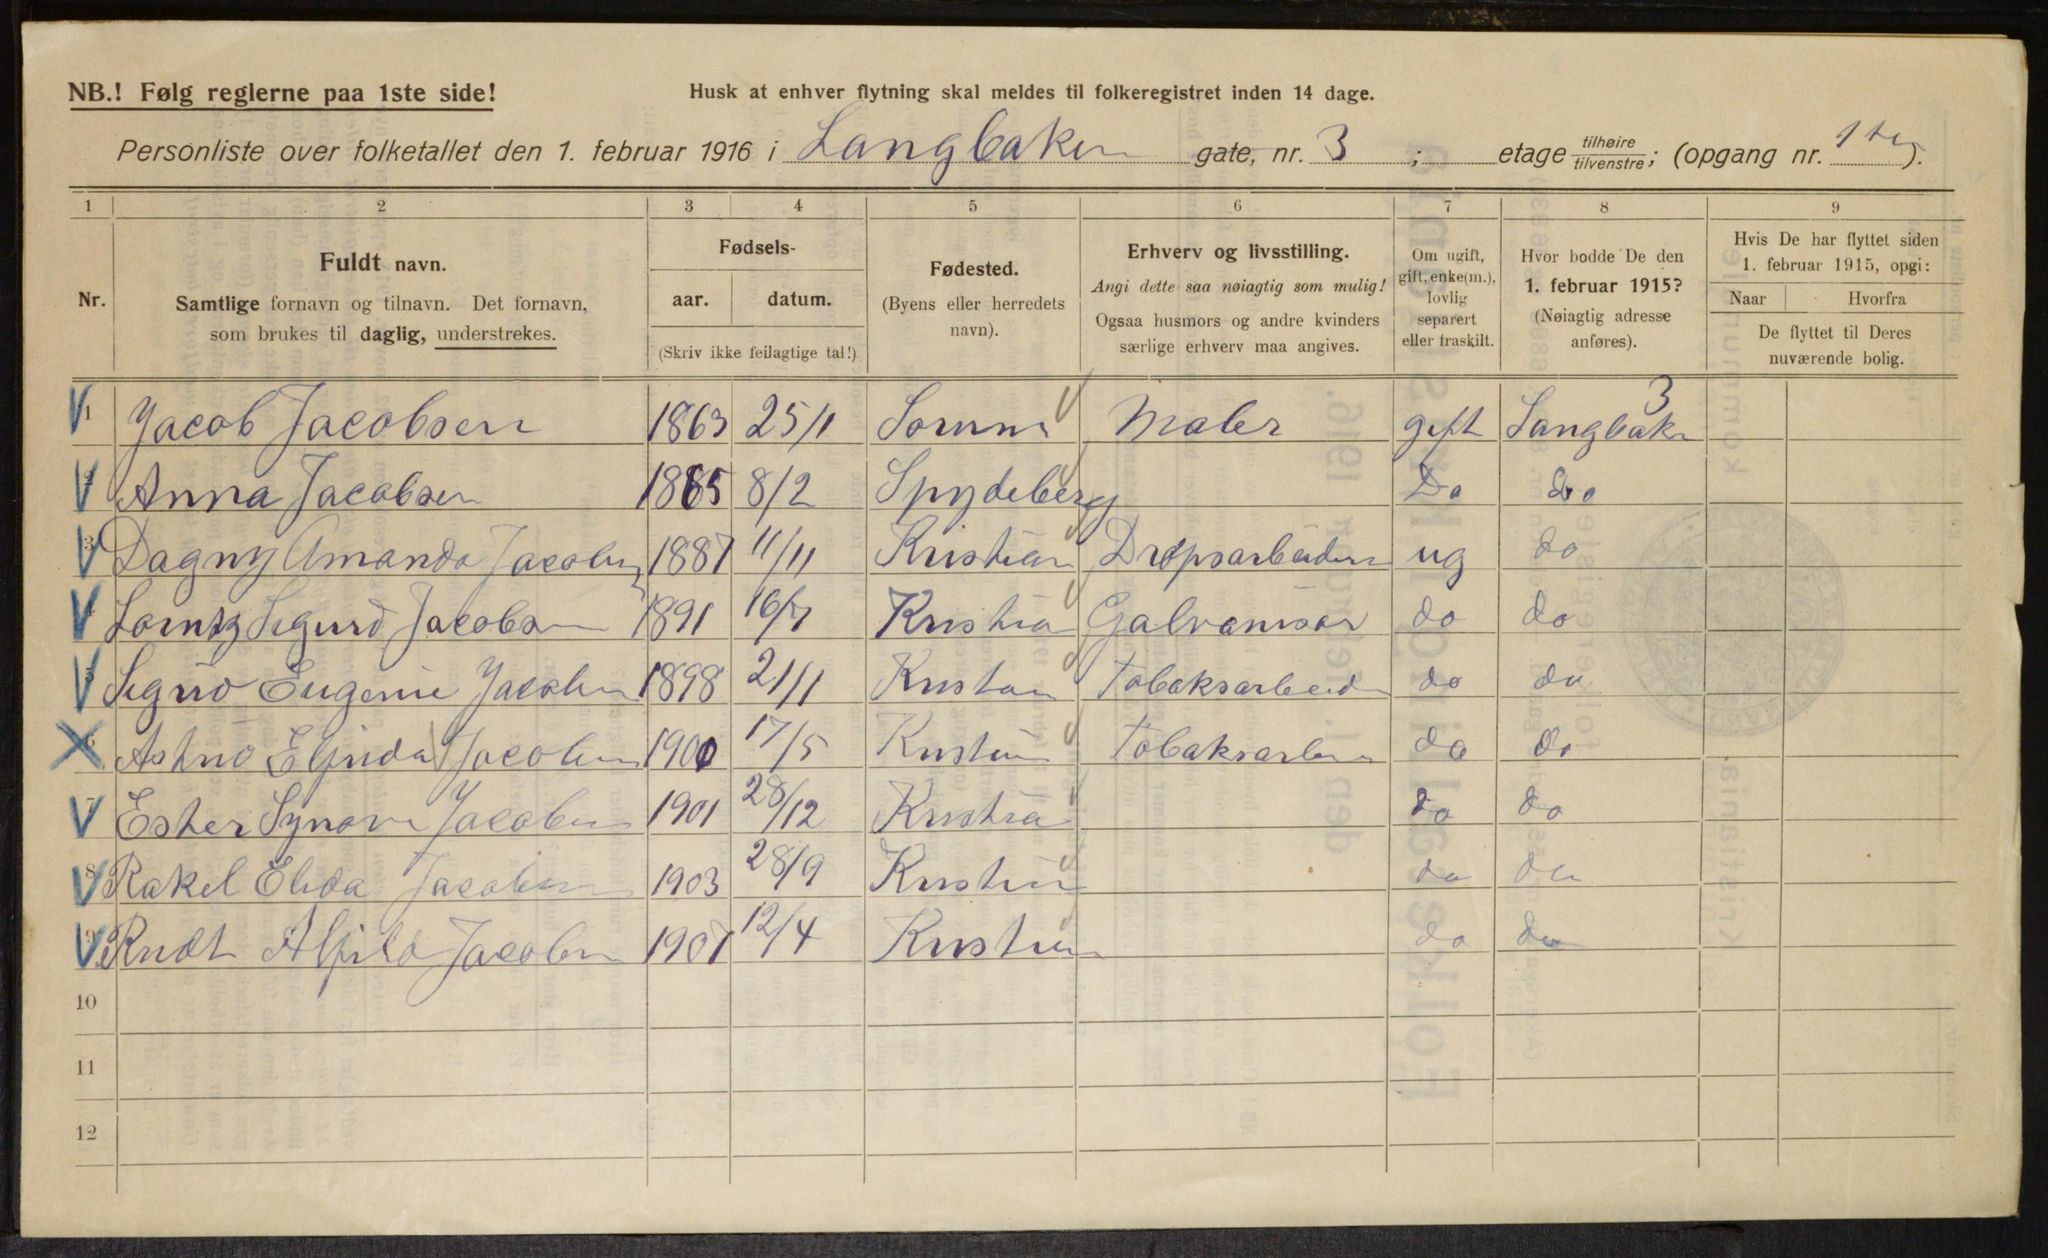 NB.! Følg reglerne paa 1ste side!
Husk at enhver flytning skal meldes til folkeregistret inden 14 dage.
Personliste over folketallet den 1. februar 1916 i Langbaken gate, nr. 3 ; etage tilhøire tilvenstre; (opgang nr. ).
1 2 3 4 5 6 7 8 9
Nr.
Fuldt navn.
Samtlige fornavn og tilnavn. Det fornavn,
som brukes til daglig, understrekes.
Fødsels-
aar. datum.
(Skriv ikke feilagtige tal!)
Fødested.
(Byens eller herredets
navn).
Erhverv og livsstilling.
Angi dette saa nøiagtig som mulig!
Ogsaa husmors og andre kvinders
særlige erhverv maa angives.
Om ugift,
gift, enke(m.),
lovlig
separert
eller fraskilt.
Hvor bodde De den
1. februar 1915?
(Nøiagtig adresse
anføres).
Hvis De har flyttet siden
1. februar 1915, opgi:
Naar Hvorfra
De flyttet til Deres
nuværende bolig.
1 Jacob Jacobsen 1863 25/1 Sorum Maler gift Langbak 3
2 Anna Jacobsen 1865 8/2 Spydeberg Do do
3 Dagny Amanda Jacobsen 1887 11/11 Kristian Dropsarbeider ug do
4 Sigurd Jacobsen 1891 16/7 Kristia Galvanisør do do
5 Sigrid Eugenie Jacobsen 1898 21/1 Kristian Tobaksarbeid do do
6 Jacobsen 1900 17/5 Kristian Tobaksarbei do do
7 Ester Synove Jacobsen 1901 28/12 Kristia do do
8 Rakel Elida Jacobsen 1903 28/9 Kristian do do
9 Alfild Jacobsen 1907 12/4 Kristian do do
10
11
12